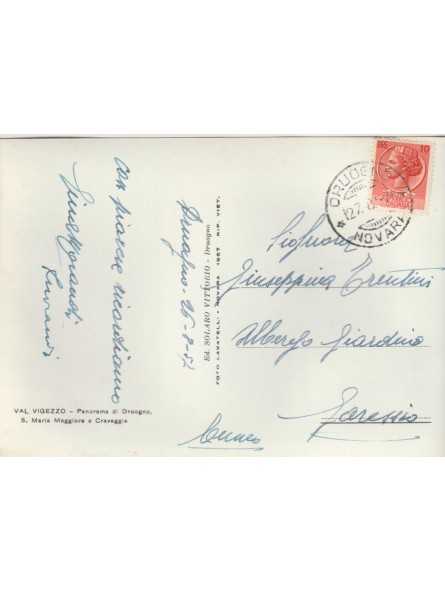 con piacere ricordiamo
Druogno - 26-8-57
Signora
Giuseppina Trentini
Albergo Giardino
Garessio
(Cuneo)
Ed. SOLARO VITTORIO - Druogno
FOTO CAVATELLI - NOVARA 1957 RIP. VIET.
VAL VIGEZZO - Panorama di Druogno,
S. Maria Maggiore e Craveggia
10
NOVARA